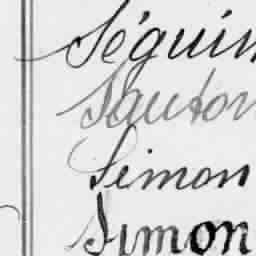 Séguin
Sauton
Simon
Simon